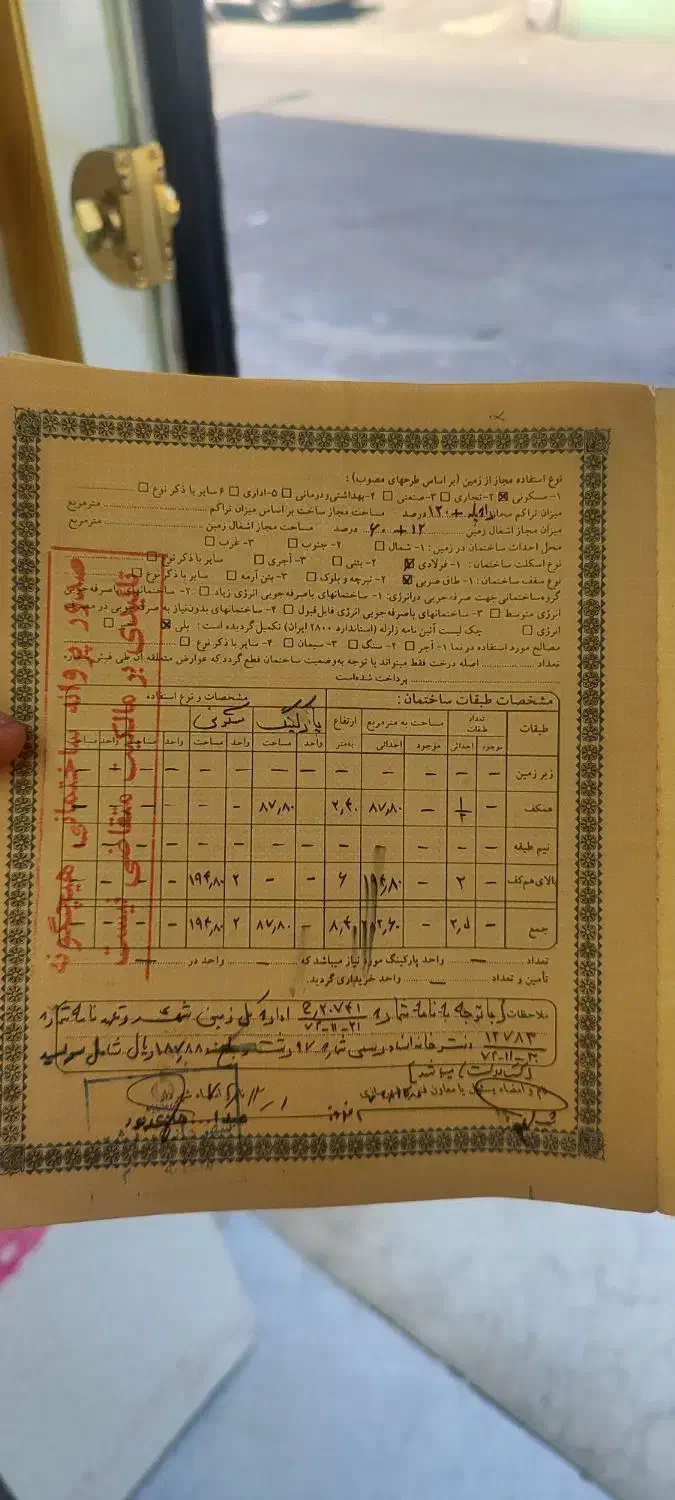 نوع استفاده مجاز از زمین (بر اساس طرحهای مصوب) :
۱- مسکونی ☒ ۲- تجاری ☐ ۳- صنعتی ☐ ۴- بهداشتی ودرمانی ☐ ۵- اداری ☐ ۶ سایر با ذکر نوع ☐
میزان تراکم مجاز ۱۲۰ درصد مساحت مجاز ساخت بر اساس میزان تراکم مترمربع
میزان مجاز اشغال زمین ۶۰+۱۲ درصد مساحت مجاز اشغال زمین مترمربع
محل احداث ساختمان در زمین : ۱- شمال ☐ ۲- جنوب ☐ ۳- غرب ☐
نوع اسکلت ساختمان : ۱- فولادی ☒ ۲- بتنی ☐ ۳- آجری ☐ سایر با ذکر نوع ☐
نوع سقف ساختمان : ۱- طاق ضربی ☒ ۲- تیرچه و بلوک ☐ ۳- بتن آرمه ☐ سایر با ذکر نوع ☐
گروه ساختمانی جهت صرفه جویی در انرژی: ۱- ساختمانهای با صرفه جویی انرژی زیاد ☐ ۲- ساختمانهای با صرفه جویی
انرژی متوسط ☐ ۳- ساختمانهای با صرفه جویی انرژی قابل قبول ☐ ۴- ساختمانهای بدون نیاز به صرفه جویی در مصرف
انرژی ☐ چک لیست آئین نامه زلزله (استاندارد ۲۸۰۰ ایران) تکمیل گردیده است : بلی ☒
مصالح مورد استفاده در نما ۱- آجر ☐ ۲- سنگ ☐ ۳- سیمان ☐ ۴- سایر با ذکر نوع ☐
تعداد اصله درخت فقط میتواند با توجه به وضعیت ساختمان قطع گردد که عوارض متعلقه آن طی فیش شماره
پرداخت شده است
صدور پروانه ساختمانی هیچگونه
تاثیری بر مالکیت متقاضی نیست
مشخصات طبقات ساختمان : مشخصات و نوع استفاده
طبقات تعداد طبقات مساحت به مترمربع ارتفاع پارکینگ مسکونی
موجود احداثی موجود احداثی به متر واحد مساحت واحد مساحت واحد مساحت واحد مساحت
زیر زمین — — — — — — — — — —
همکف — ۱/۲ — ۸۷,۸۰ ۲,۴۰ ۸۷,۸۰ - - —
نیم طبقه — — — — — — — — —
بالای همکف — ۲ — ۱۹۴,۸۰ ۶ - - ۲ ۱۹۴,۸۰ —
جمع — ۲,۵ — ۸,۴۰ - ۸۷,۸۰ ۲ ۱۹۴,۸۰ —
تعداد — واحد پارکینگ مورد نیاز میباشد که — واحد در —
تأمین و تعداد — واحد خریداری گردید.
ملاحظات [با توجه به نامه شماره ۲۰۷۴۱ / ۷۲-۱۱-۲۱ اداره کل زمین شهری و تعهدنامه شماره
۱۲۷۸۳ دفترخانه اسناد رسمی شماره ۹۷ رشت ۱۸۷,۸۸ ریال شامل